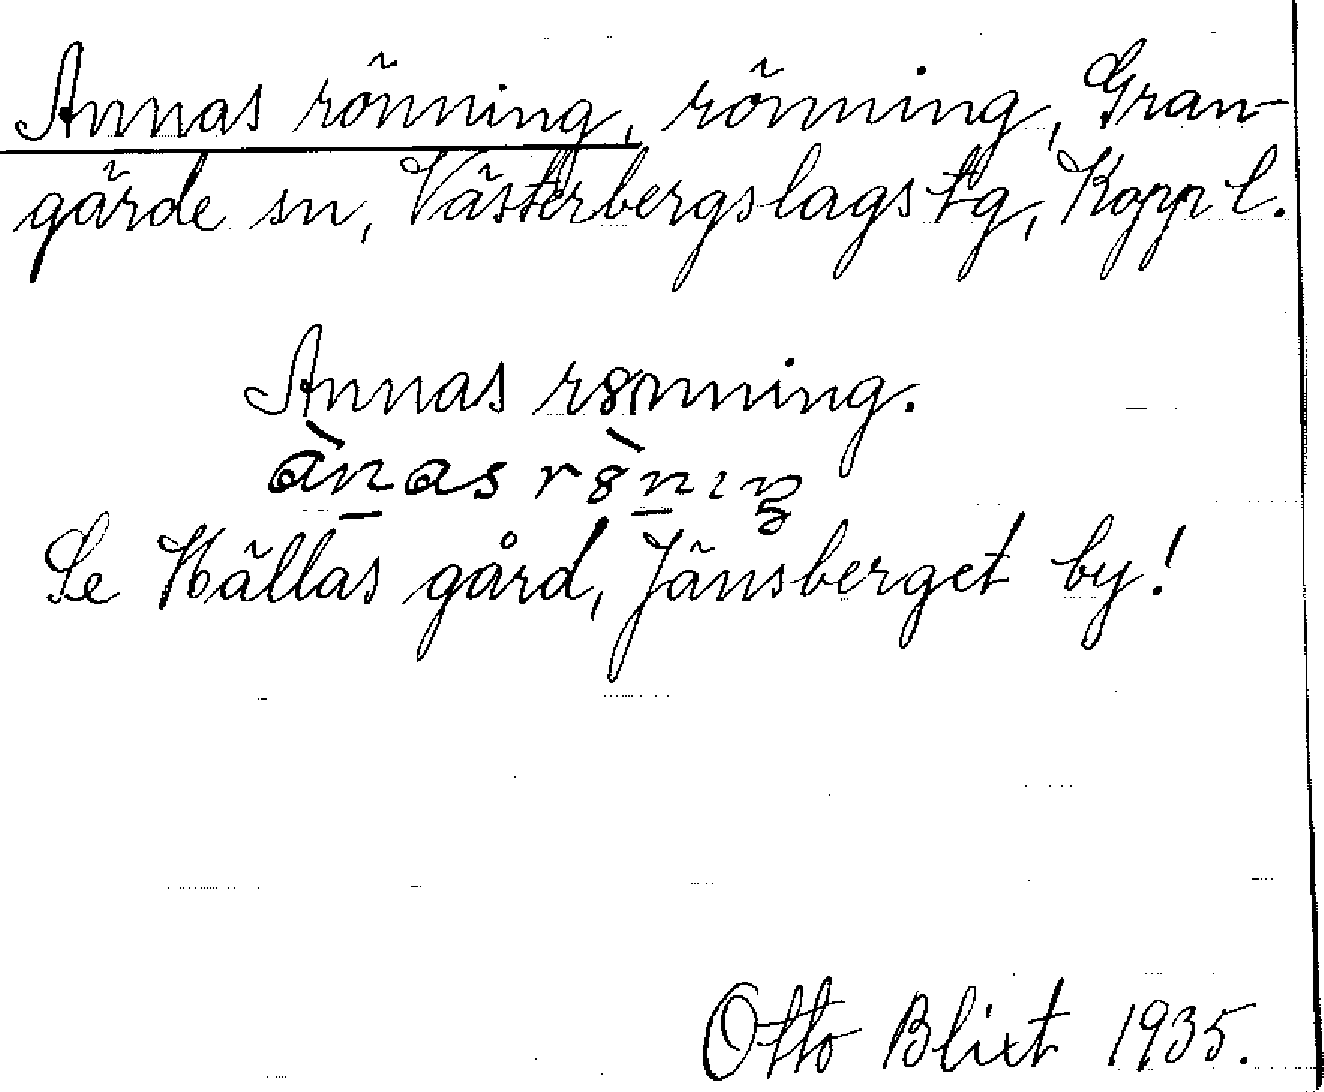 Annas rönning, rönning, Gran-
gärde sn, Västerbergslags tg, Kopp l.
Annas r8nning.
ànas r8̀niŋ
Se Hällas gård, Jänsberget by!
Otto Blixt 1935.